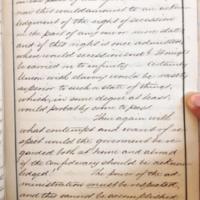 now this would amount to an ack
nowledgment of the right of secession
in the part of any one or more states
and if this right is once admitted
where would secession end? It might
be carried on to infinity. Certainly
Union with slavery would be vastly
superior to such a state of things,
which, in some degree at least,
would probably ensue to pass.
Then again with
what contempt and want of re-
spect would the government be re-
garded both at home and abroad
if the confederacy should be acknow-
ledged. The power of the ad-
ministration must be respected,
and this cannot be accomplished